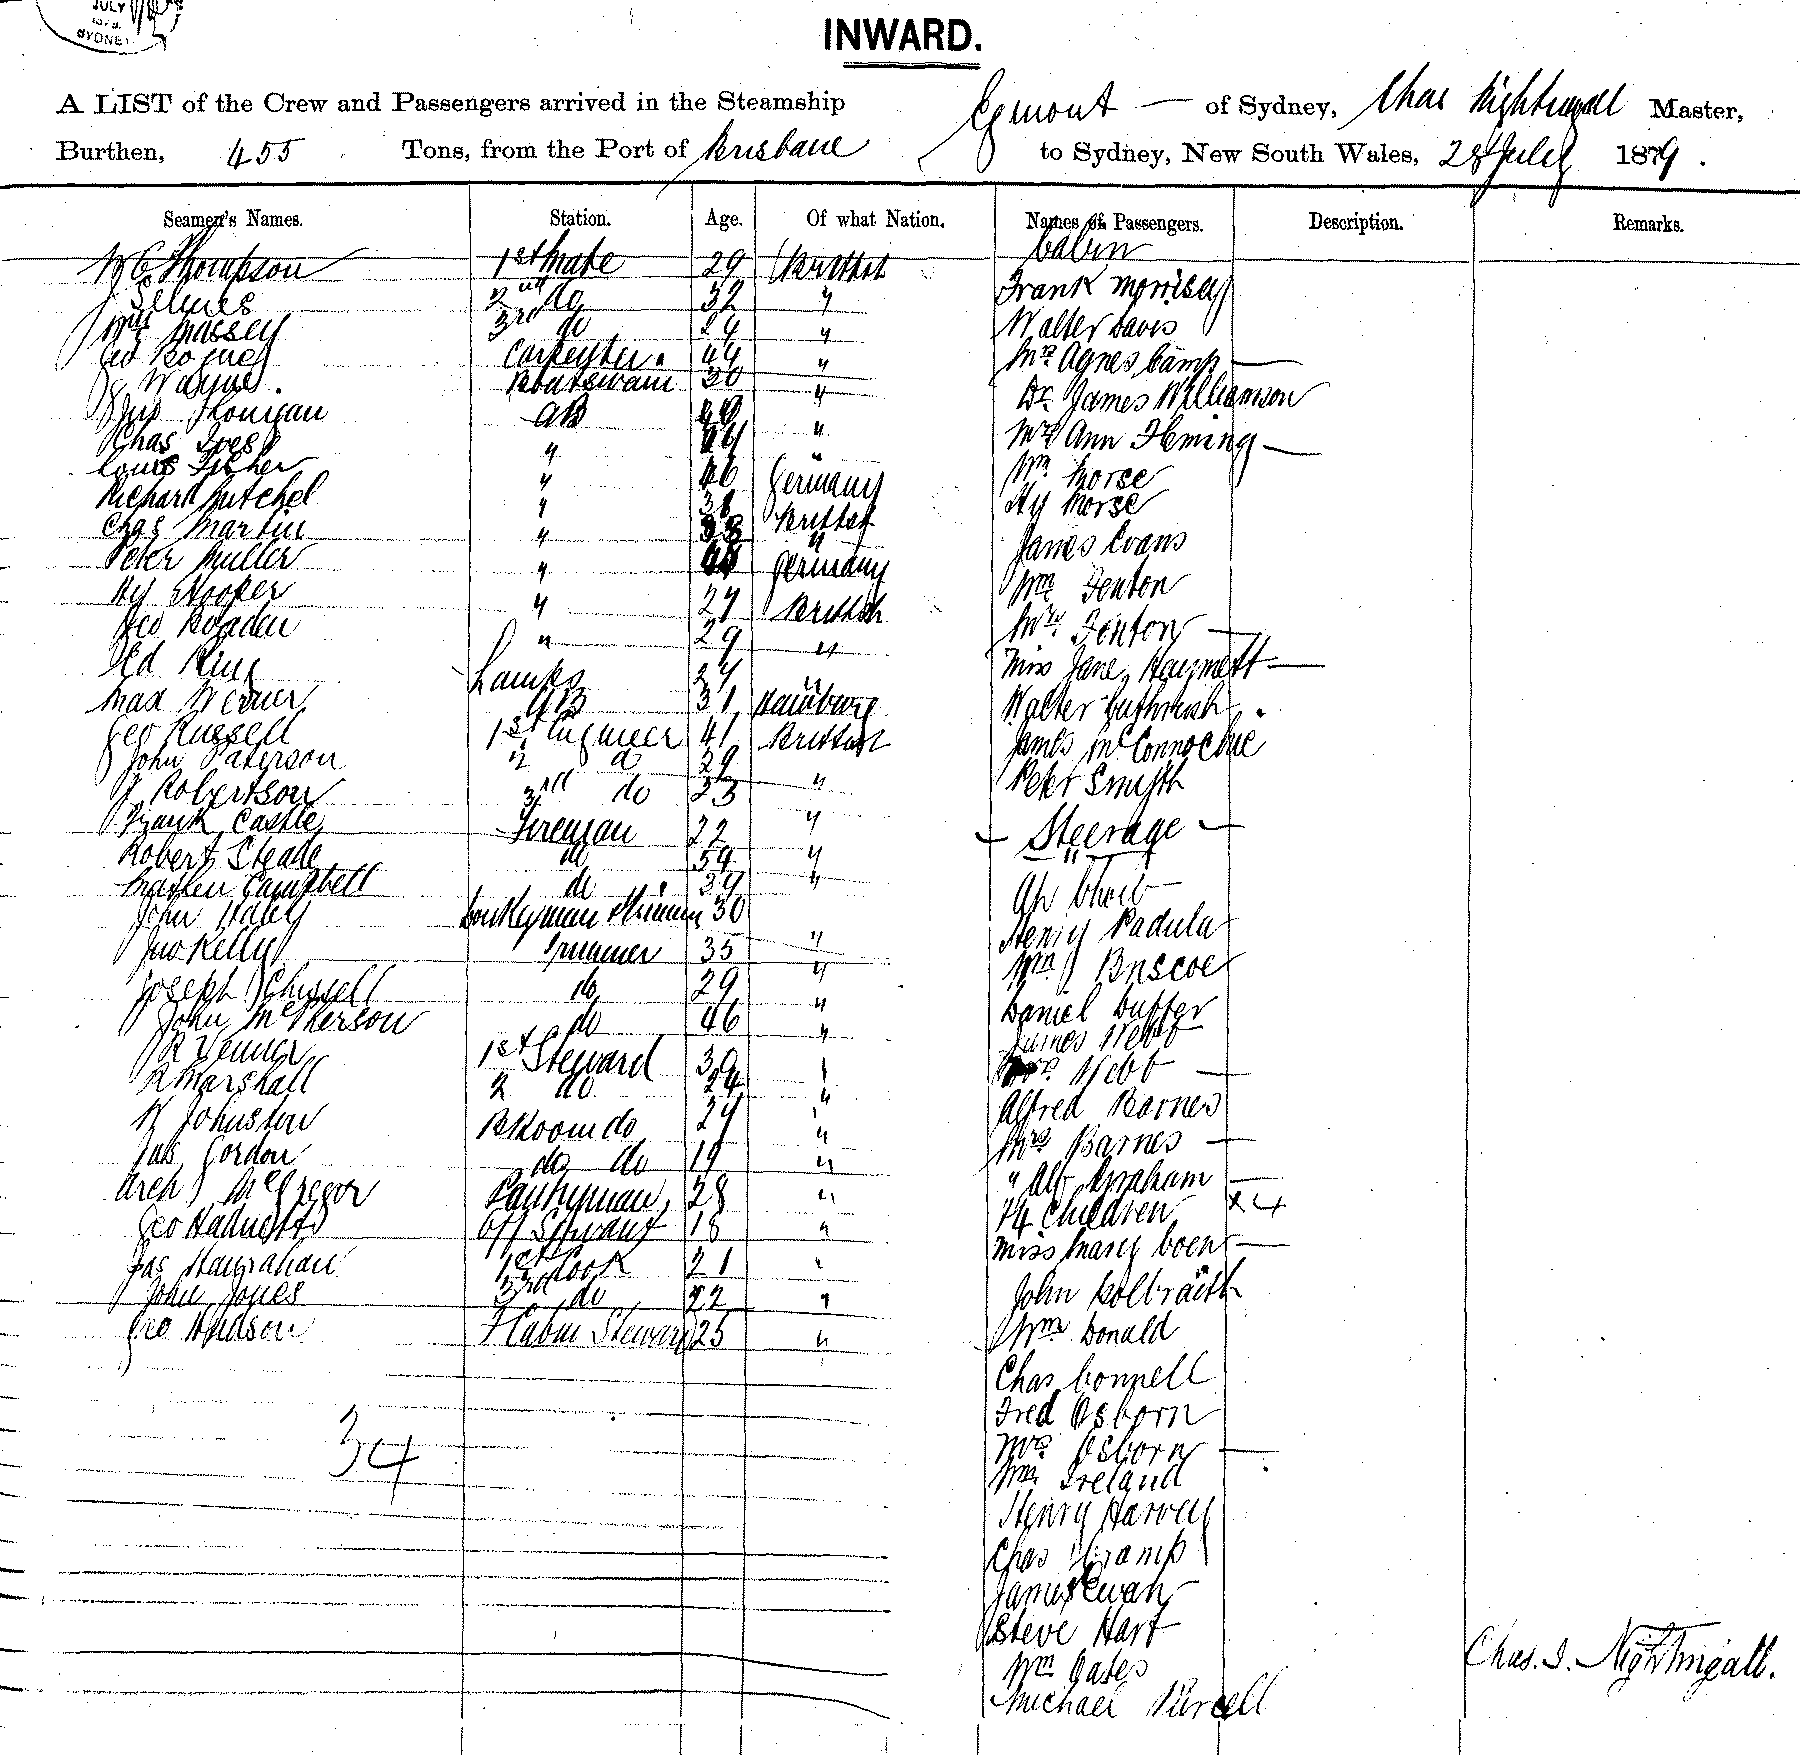 JULY
1879.
SYDNEY
INWARD.
A LIST of the Crew and Passengers arrived in the Steamship Egmont — of Sydney, Chas Nightingall Master,
Burthen, 455 Tons, from the Port of Brisbane to Sydney, New South Wales, 28 July 1879.
Seamen's Names. Station. Age. Of what Nation. Names of Passengers. Description. Remarks.
Cabin
Thompson 1st Mate 29 British
Frank Morrisey
2nd do 32 "
Wm Massey 3rd do 24 "
Walter Davis
Geo Carpenter. 44 "
Mrs Agnes Camp —
Wayne. Boatswain 30 "
Dr James Williamson
AB "
Mrs Ann Fleming —
Chas Ives " "
Louis Fisher " 46 Germany
Wm Morse
Richard Mitchel " British
Hy Morse
Chas Martin " 33 "
James Evans
Peter Muller " Germany
Wm Fenton
Hy Hooper " 27 British
Mrs Fenton —
Geo " 29 "
Miss Jane Hammett —
Fred King Lamps 27 "
Max Werner AB 31 Hamburg
Walter
Geo Russell 1st Engineer 41 British
James McConnochie
John Paterson 2 do 29 "
Peter Smyth
Robertson 3rd do 23 "
Frank Castle Fireman 22 "
— Steerage —
Robert Steade do 39 "
Campbell do 34 "
Ah
John Haley Donkeyman 30
Henry Padula
Jno Kelly Trimmer 35 "
Wm Briscoe
Joseph Chissell do 29 "
Daniel Duffer
John McPherson do 46 "
James Webb
R Venner 1st Steward 39 "
Mrs Webb —
R Marshall 2 do 24 "
Alfred Barnes
R Johnston B Room do 24 "
Mrs Barnes —
Jas Gordon do do 19 "
" Alf Abraham —
Arch McGregor Pantryman 28 "
& 4 Children x 4
Geo Off Servant 18 "
Miss Mary Coen —
Jas Hanrahan 1st Cook 21 "
John Holbraith
John Jones do 22 "
Geo Hudson F Cabin Steward 25 "
Wm Donald
Chas Connell
Fred Osborn
34
Mrs Osborn —
Wm Ireland
Henry Harvey
Chas
James Ewan
Steve Hart
Wm Gates
Michael Purcell
Chas. I. Nightingall.